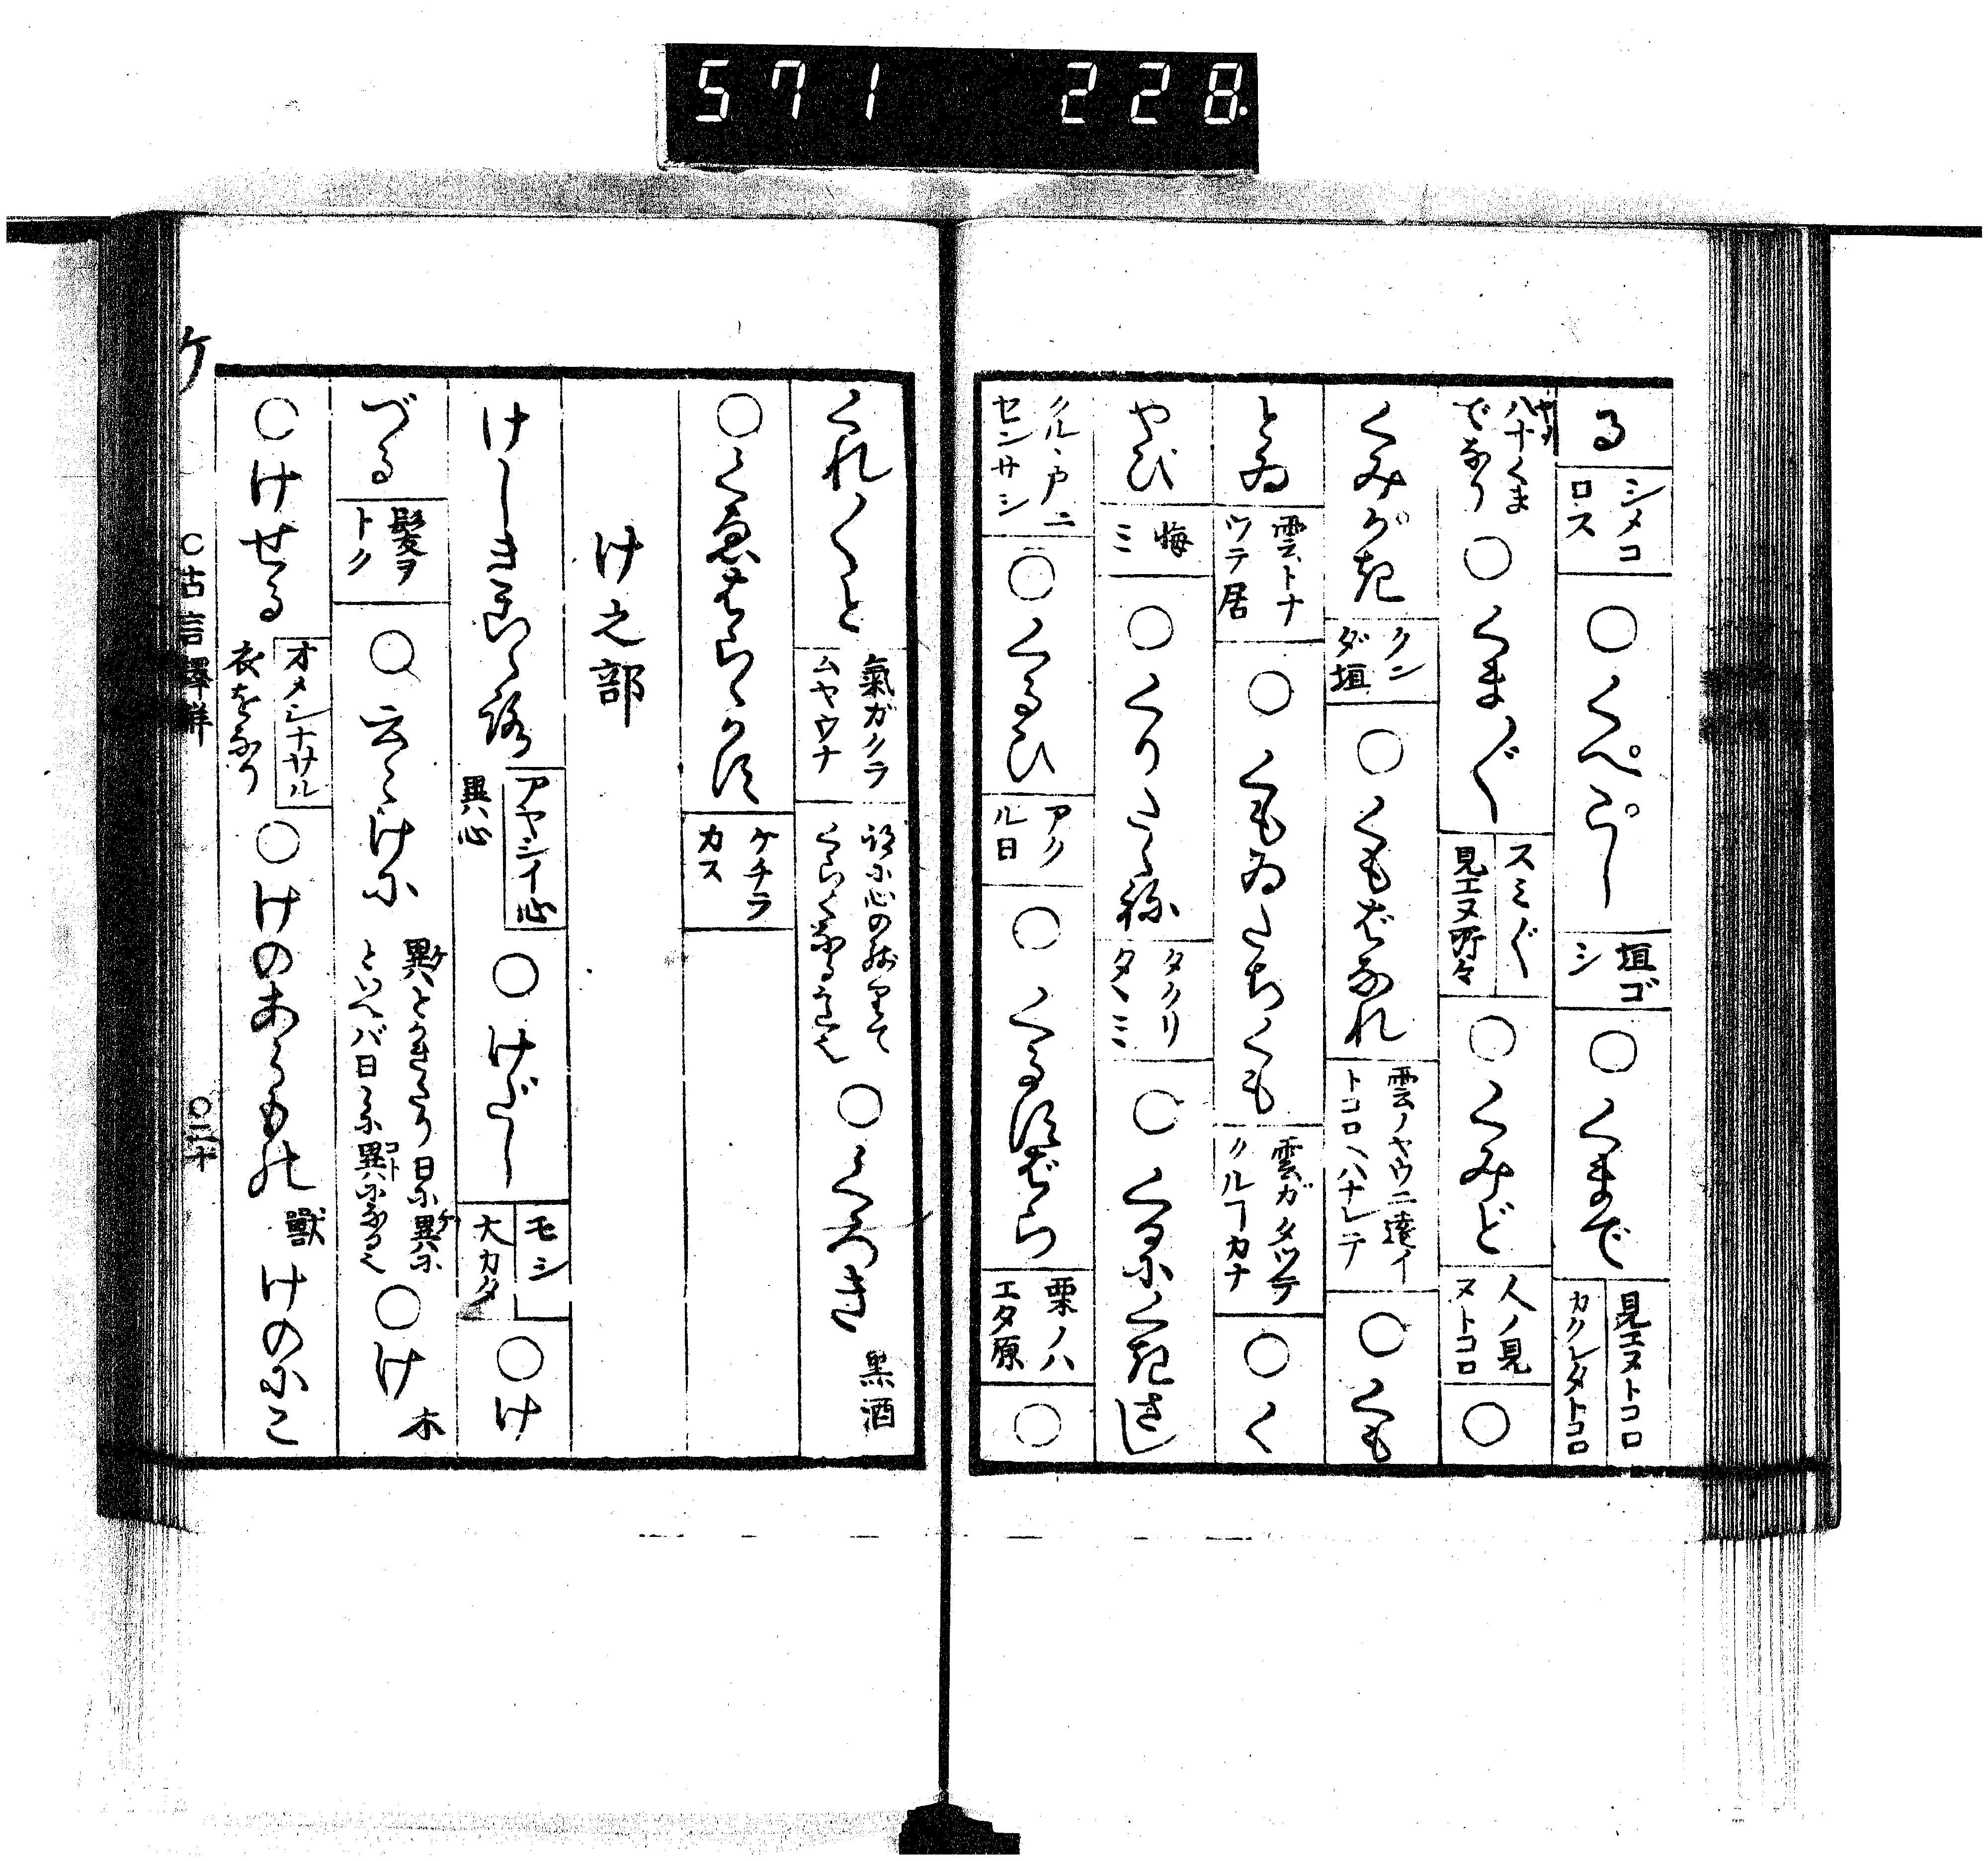 571 228
る シメコロス ○くべごし 垣ゴシ ○くまで 見エヌトコロ カクレタトコロ
八十くまでなり ○くまぐ スミ〴〵 見エヌ所々 ○くみど 人ノ見ヌトコロ ○
くみがき クンダ垣 ○くもばなれ 雲ノヤウニ遠イトコロヘハナレテ ○くも
とゐ 雲トナツテ居 ○くもゐたちくも 雲ガタツテクルコカナ ○く
やび 悔ミ ○くりたゝね タクリタヽミ ○くるにくきさし
クル戸ニセンサシ ○くるひ アクル日 ○くるすばら 栗ノハエタ原 ○
くれ〳〵と 氣ガクラムヤウナ ○くろき 黒酒
○くゑはらゝかす ケチラカス
け之部
けしきこゝろ アヤシイ心 異心 ○けだし モシ 大カタ ○け
づる 髪ヲトク ○云々けに 異とかきたり日に異にといへバ日々に異になる也 ○け 木
○けせる オメシナサル 衣をなり ○けのあらもの 獣 けのにこ
ケ
○古言譯解 ○二十